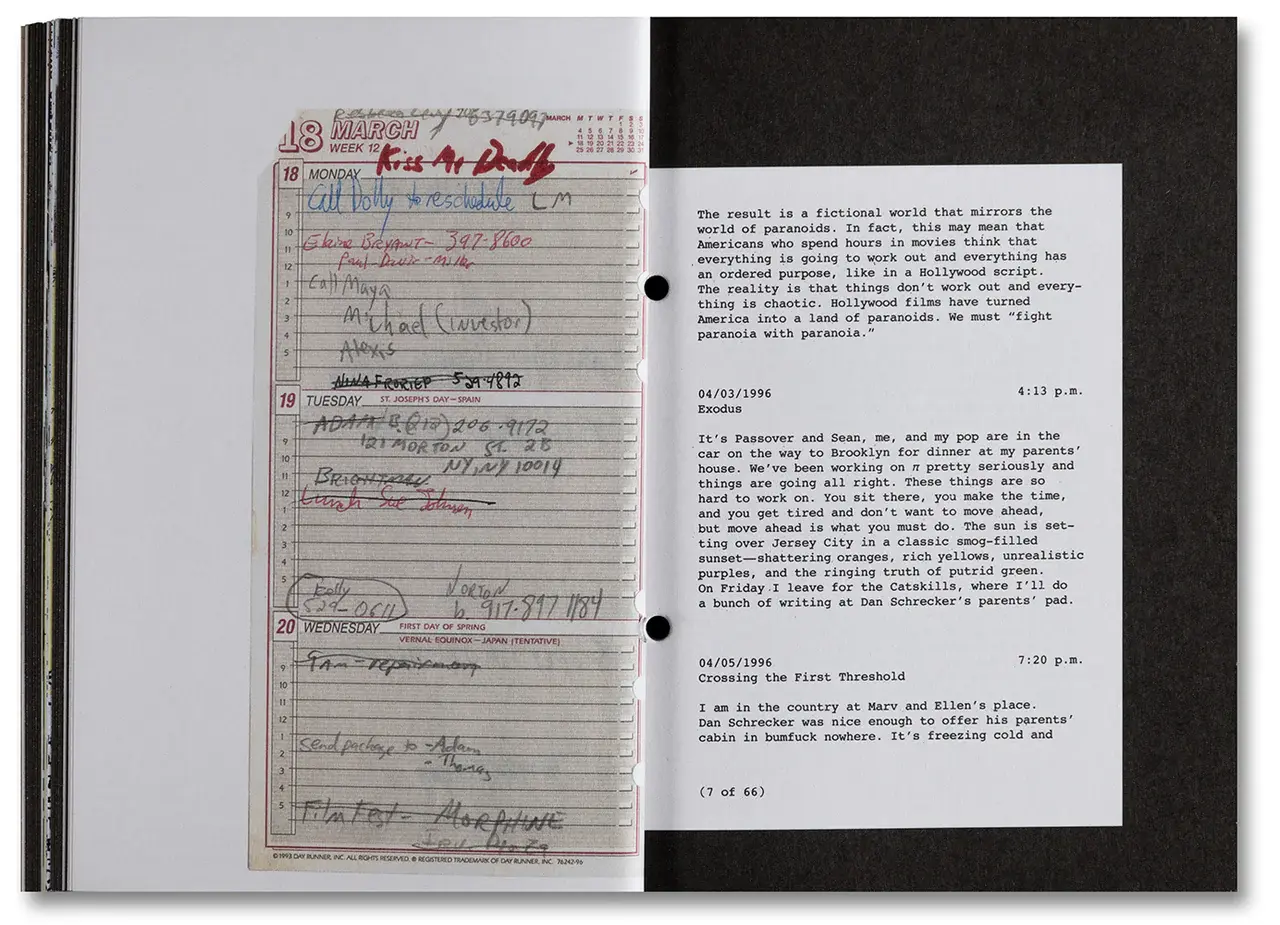 6379097
18 MARCH
WEEK 12
MARCH M T W T F S S
1 2 3
4 5 6 7 8 9 10
11 12 13 14 15 16 17
18 19 20 21 22 23 24
25 26 27 28 29 30 31
Kiss Me Deadly
18 MONDAY
Call Dolly to reschedule LM
9
10
Elaine BRYANT - 397-8600
11
Paul - Davis - Miller
12
Call Maya
1
2
Michael (investor)
3
4
Alexis
5
NINA FRORIEP 529-4892
19 TUESDAY ST. JOSEPH'S DAY—SPAIN
ADAM B. (212) 206-9172
9
121 MORTON ST. 2B
10
NY, NY 10014
11
BRIGHTMAN
12
Lunch Sue Johnen
1
2
3
4
5
Kelly
529-0611
NORTON
b. 917-897 1184
20 WEDNESDAY FIRST DAY OF SPRING
VERNAL EQUINOX—JAPAN (TENTATIVE)
9
9am - repairman
10
11
12
1
2
send package to - Adam
- Thomas
3
4
5
Film Fest - MORPHINE
©1993 DAY RUNNER, INC. ALL RIGHTS RESERVED. ® REGISTERED TRADEMARK OF DAY RUNNER, INC. 76242-96
The result is a fictional world that mirrors the
world of paranoids. In fact, this may mean that
Americans who spend hours in movies think that
everything is going to work out and everything has
an ordered purpose, like in a Hollywood script.
The reality is that things don't work out and every-
thing is chaotic. Hollywood films have turned
America into a land of paranoids. We must “fight
paranoia with paranoia.”
04/03/1996 4:13 p.m.
Exodus
It's Passover and Sean, me, and my pop are in the
car on the way to Brooklyn for dinner at my parents'
house. We've been working on π pretty seriously and
things are going all right. These things are so
hard to work on. You sit there, you make the time,
and you get tired and don't want to move ahead,
but move ahead is what you must do. The sun is set-
ting over Jersey City in a classic smog-filled
sunset—shattering oranges, rich yellows, unrealistic
purples, and the ringing truth of putrid green.
On Friday I leave for the Catskills, where I'll do
a bunch of writing at Dan Schrecker's parents' pad.
04/05/1996 7:20 p.m.
Crossing the First Threshold
I am in the country at Marv and Ellen's place.
Dan Schrecker was nice enough to offer his parents'
cabin in bumfuck nowhere. It's freezing cold and
(7 of 66)